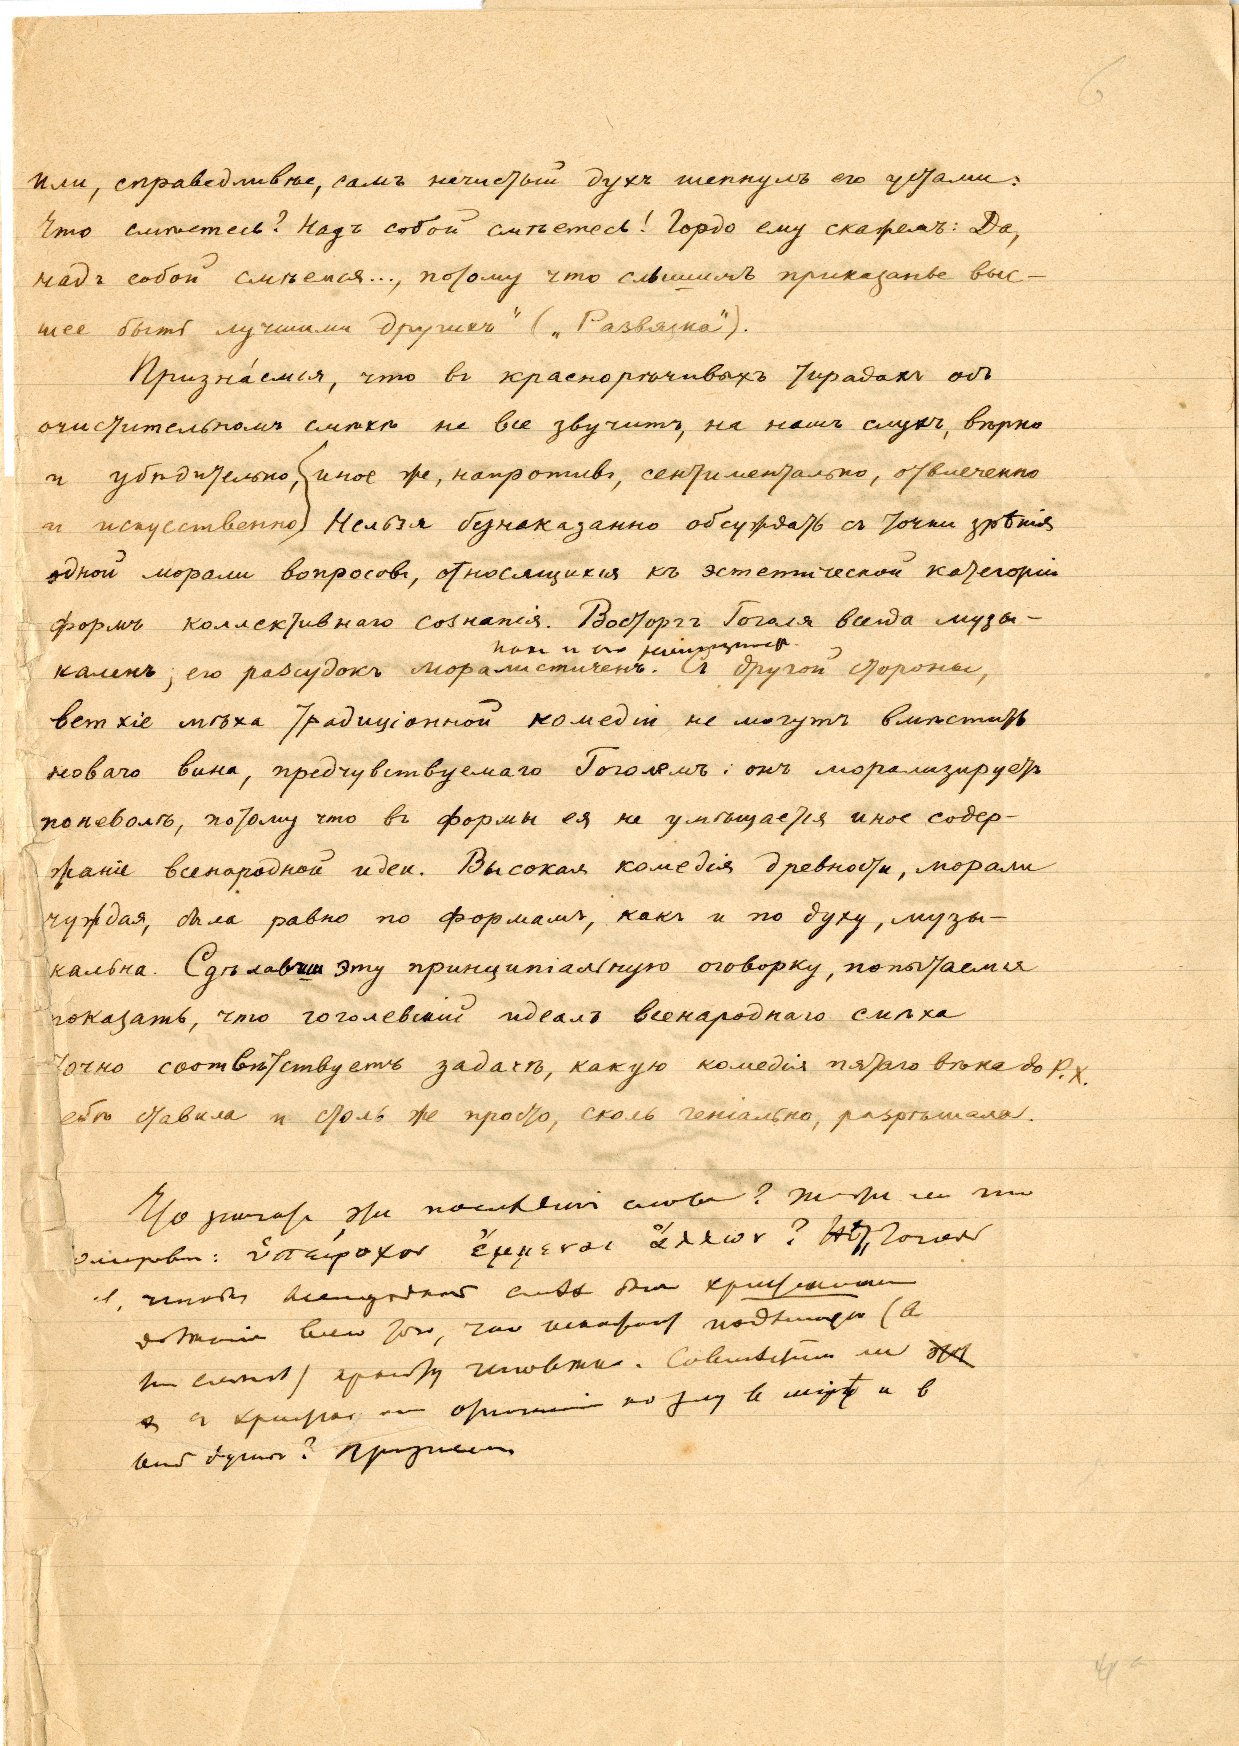 6
или, справедливѣе, самъ нечистый духъ шепнулъ его устами:
Что смѣетесь? Надъ собой смѣетесь! Гордо ему скажемъ: Да,
надъ собой смѣемся..., потому что слышимъ приказанье выс-
шее быть лучшими другихъ" („Развязка").
Призна́емся, что въ краснорѣчивыхъ тирадахъ объ
очистительномъ смѣхѣ не все звучитъ, на нашъ слухъ, вѣрно
и убѣдительно, иное же, напротивъ, сентиментально, отвлеченно
и искусственно) Нельзя безнаказанно обсуждать съ точки зрѣнія
одной морали вопросовъ, относящихся къ эстетической категоріи
формъ коллективнаго сознанія. Восторгъ Гоголя всегда музы-
каленъ; его разсудокъ моралистиченъ. Съ другой стороны,
ветхіе мѣха традиціонной комедіи не могутъ вмѣстить
новаго вина, предчувствуемаго Гоголемъ: онъ морализируетъ
поневолѣ, потому что въ формы ея не умѣщается иное содер-
жаніе всенародной идеи. Высокая комедія древности, морали
чуждая, была равно по формамъ, какъ и по духу, музы-
кальна. Сдѣлавши эту принципіальную оговорку, попытаемся
показать, что гоголевскій идеалъ всенароднаго смѣха
точно соотвѣтствуетъ задачѣ, какую комедія пятаго вѣка до Р.Х.
себѣ ставила и столь же просто, сколь геніально, разрѣшала.
Что значатъ эти послѣднія слова?
ὑπείροχον ἔμμεναι ἄλλων?
чтобы смѣхъ былъ
всего того, что
человѣка.
въ мірѣ и въ